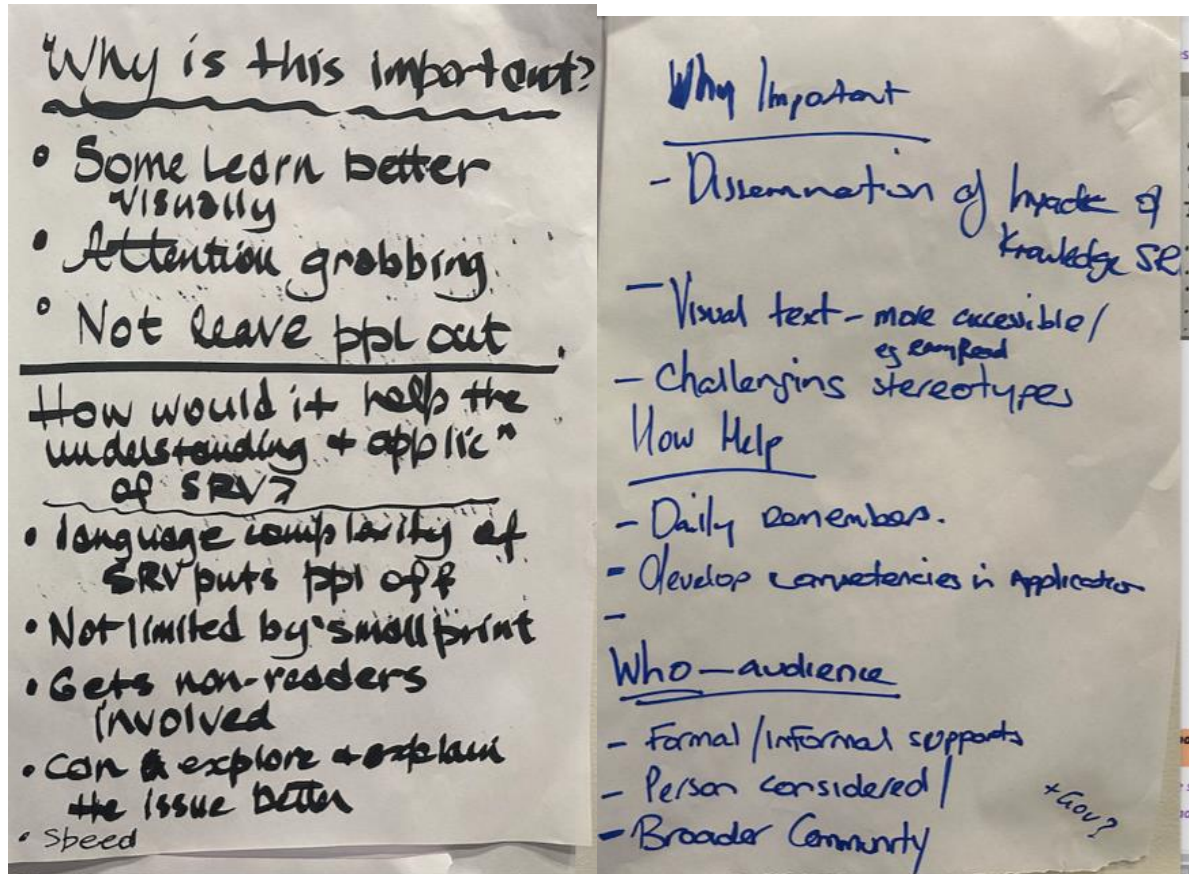 Why is this important?
• Some Learn better
visually
• Attention grabbing.
• Not leave ppl out
How would it help the
understanding + applicⁿ
of SRV?
• language complexity of
SRV puts ppl off
• Not limited by "small print
• Gets non-readers
involved
• Can explore + explain
the issue better
• Speed
Why Important
- Dissemnation of Impact of
Knowledge SR
- Visual text - more accessible/
eg EasyRead
- Challenging stereotypes
How Help
- Daily remembers.
- Develop competencies in Application
-
Who - audience
- Formal/Informal supports
- Person considered/
- Broader Community
+Gov?